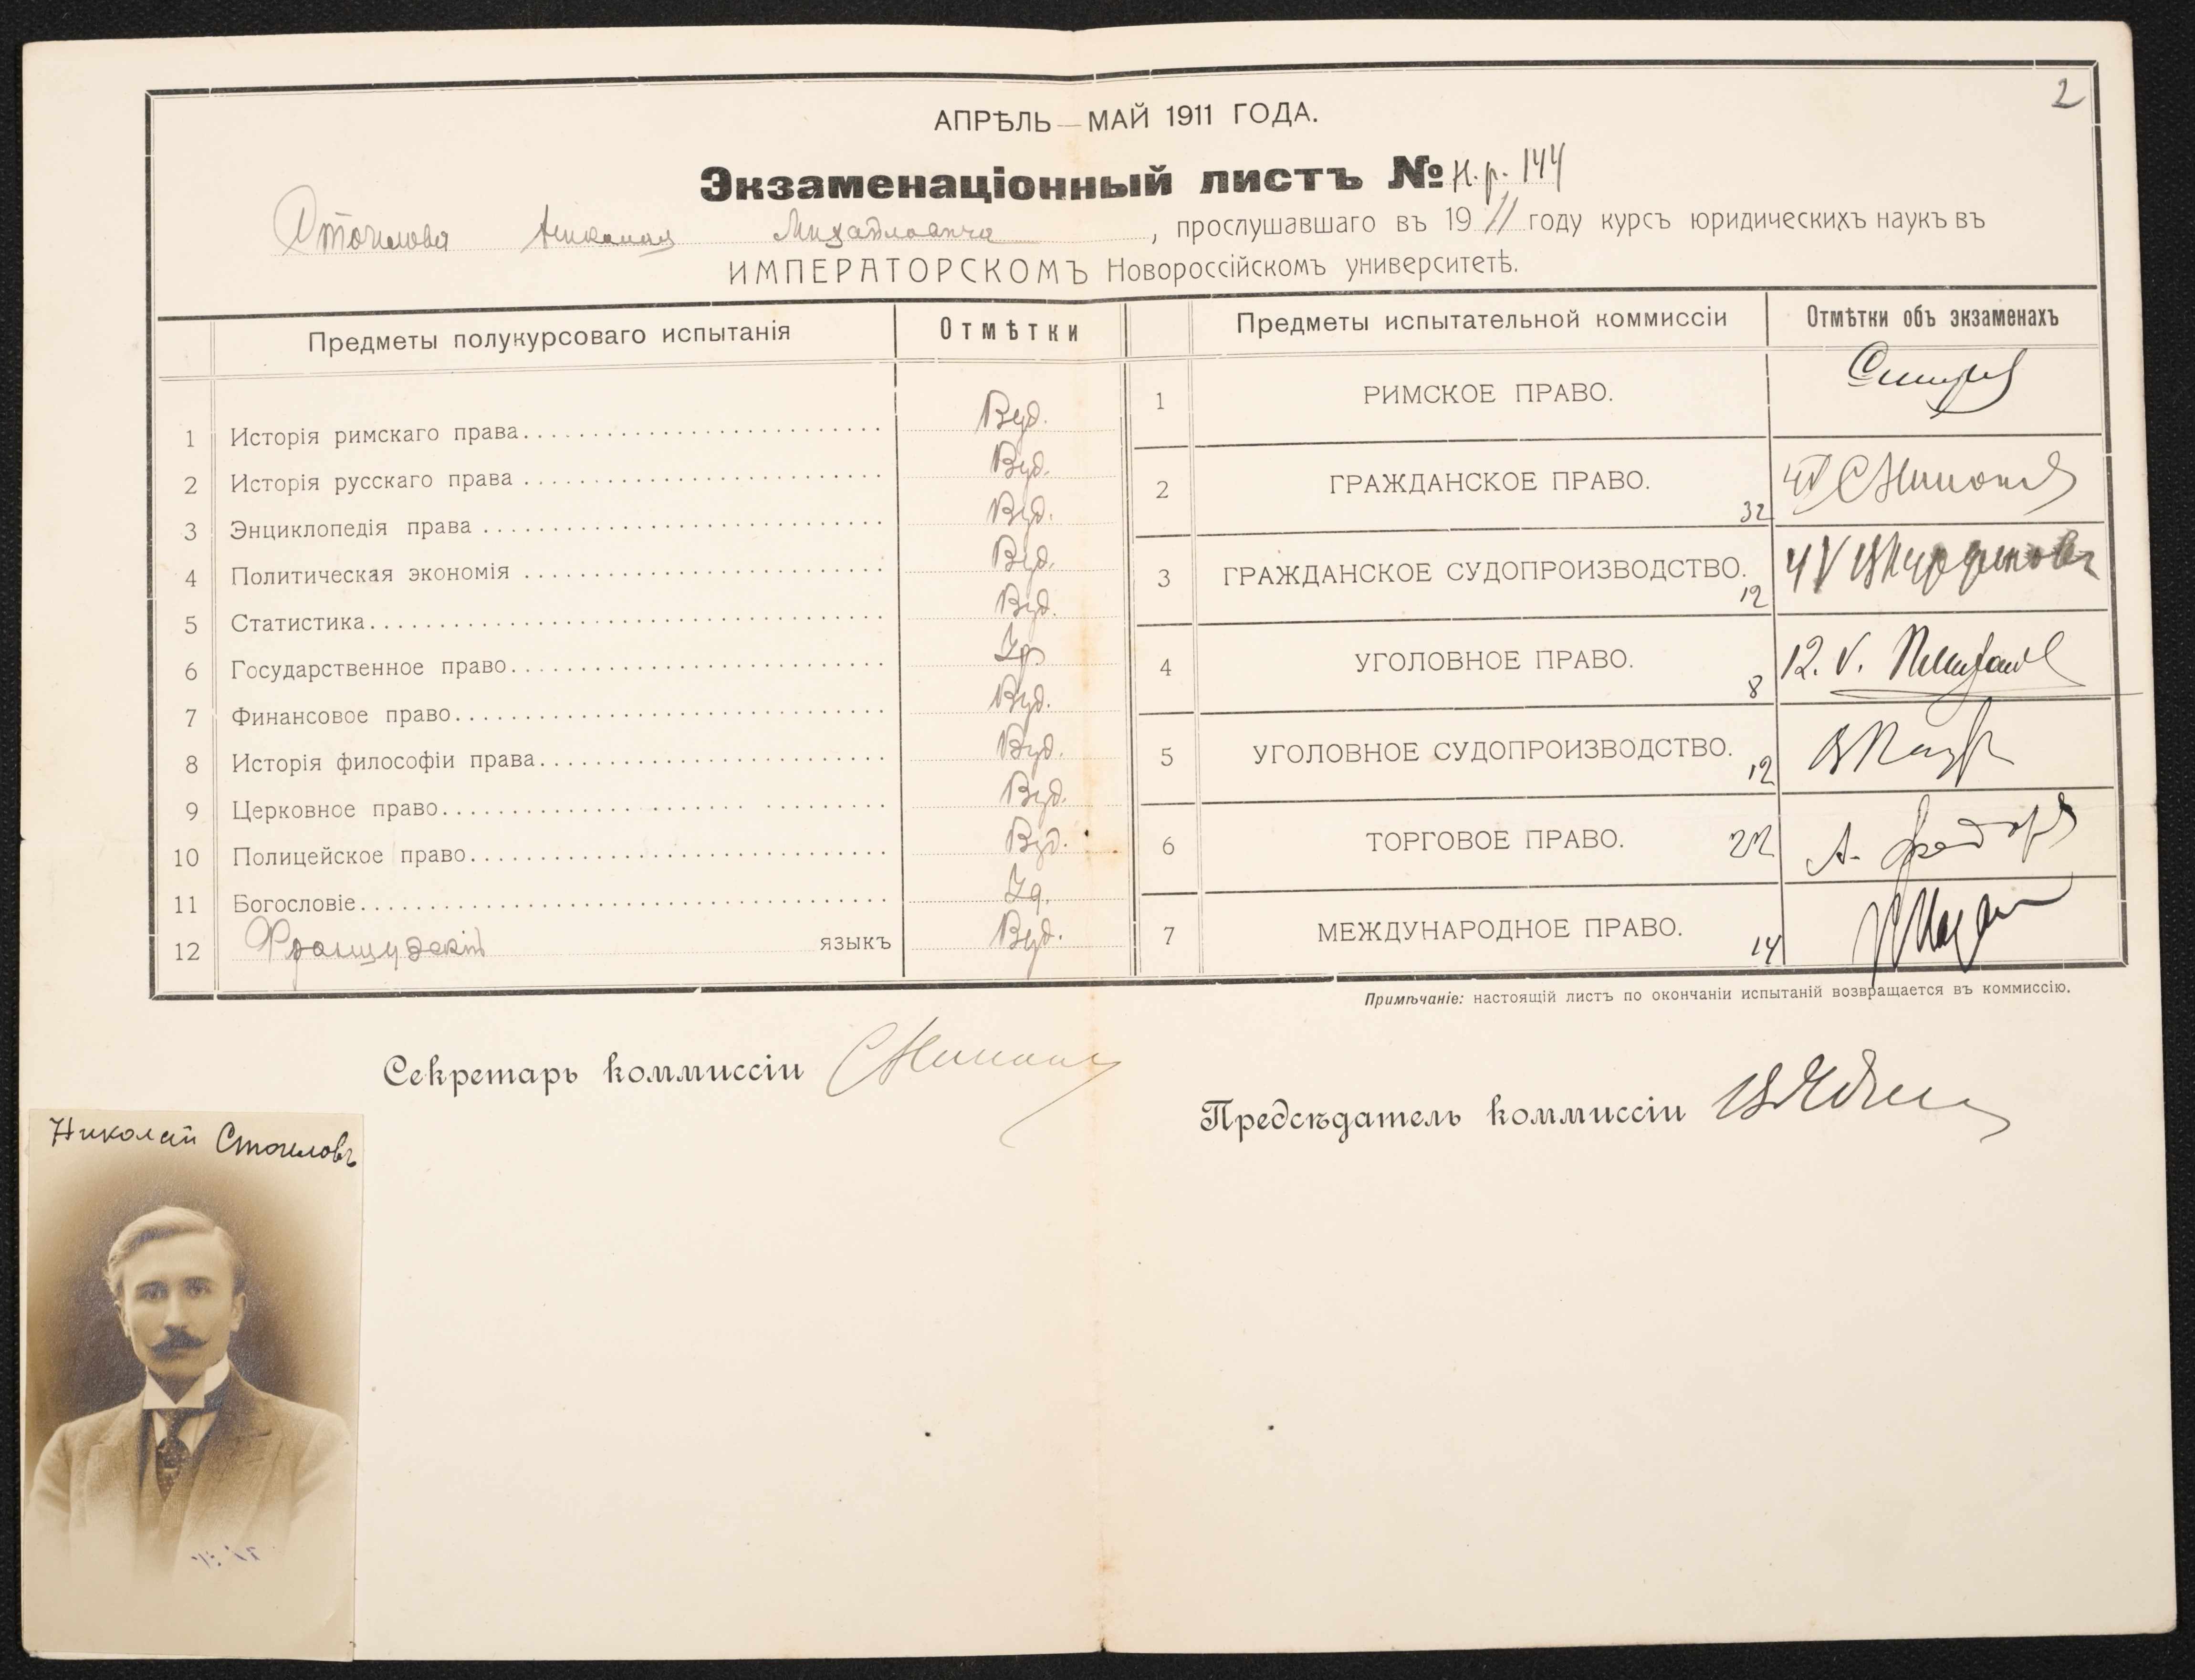 2
АПРѢЛЬ — МАЙ 1911 ГОДА.
Экзаменаціонный листъ № Н.р. 144
Стоилова Николая Михайловича, прослушавшаго въ 1911 году курсъ юридическихъ наукъ въ
ИМПЕРАТОРСКОМЪ Новороссійскомъ университетѣ.
Предметы полукурсоваго испытанія Отмѣтки
1 Исторія римскаго права Вуд.
2 Исторія русскаго права Вуд.
3 Энциклопедія права Вуд.
4 Политическая экономія Вуд.
5 Статистика Вуд.
6 Государственное право Уд.
7 Финансовое право Вуд.
8 Исторія философіи права Вуд.
9 Церковное право Вуд.
10 Полицейское право Вуд.
11 Богословіе Уд.
12 Французскій языкъ Вуд.
Предметы испытательной коммиссіи Отмѣтки объ экзаменахъ
1 РИМСКОЕ ПРАВО.
2 ГРАЖДАНСКОЕ ПРАВО. 32
3 ГРАЖДАНСКОЕ СУДОПРОИЗВОДСТВО. 12 4 V
4 УГОЛОВНОЕ ПРАВО. 8 12. V.
5 УГОЛОВНОЕ СУДОПРОИЗВОДСТВО. 12
6 ТОРГОВОЕ ПРАВО. 22 А.
7 МЕЖДУНАРОДНОЕ ПРАВО. 14
Примѣчаніе: настоящій листъ по окончаніи испытаній возвращается въ коммиссію.
Секретарь коммиссіи
Предсѣдатель коммиссіи
Николай Стоиловъ